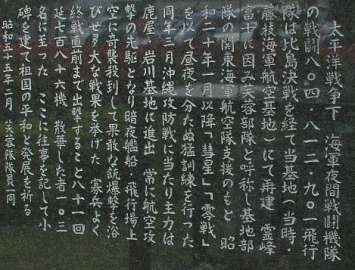 太平洋戦争下 海軍夜間戦闘機隊
の戦闘八〇四 八一二 九〇一飛行
隊は比島決戦を経て当基地(当時・
藤枝海軍航空基地)にて再建 霊峰
富士に因み芙蓉部隊と呼称し基地部
隊の関東海軍航空隊支援のもと 昭
和二十年一月以降「彗星」「零戦」
を以て昼夜を分たぬ猛訓練を行った
同年三月沖縄攻防戦に当たり主力は
鹿屋・岩川基地に進出 常に航空攻
撃の先駆となり暗夜艦船・飛行場上
空に奇襲殺到して果敢な銃爆撃を浴
びせ多大な戦果を挙げた 寡兵よく
終戦直前まで出撃すること八十一回
延七百八十六機 散華した者一〇三
名に主った ここに往事を記して小
碑を建て祖国の平和と発展を祈る
昭和五十五年二月 芙蓉部隊隊員一同